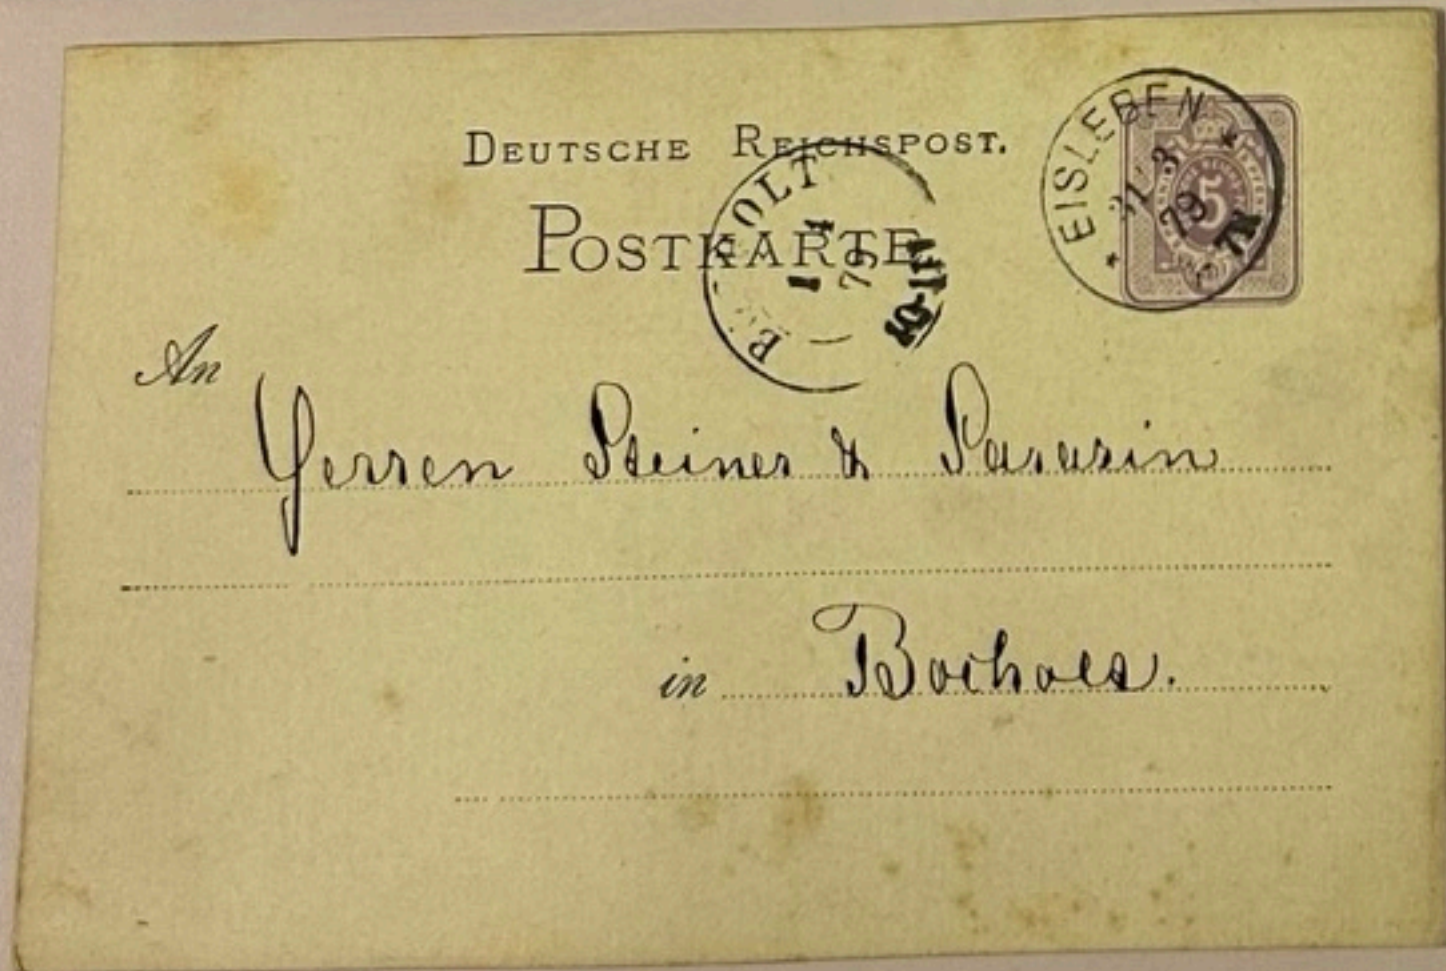 DEUTSCHE REICHSPOST.
POSTKARTE
EISLEBEN
31 3
79
7-8N
OLT
1 4
79
An
Herren Steiner & Sararin
in Bocholt.
5